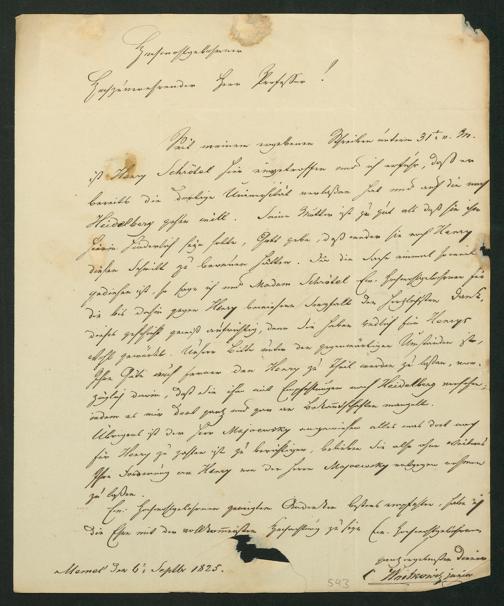 Hochwohlgeborner
Hochzuverehrender Herr Professor!
Seit meinem ergebenen Schreiben unterm 31t v. M.
ist Henry Schrötel hier eingetroffen und ich erfuhr, daß er
bereits die dortige Universität verlassen hat und auf die nach
Heidelberg gehen will. Seine Mutter ist zu gut als daß sie ihm
hierin hinderlich sein sollte, Gott gebe, daß weder sie noch Henry
diesen Schritt zu bereuen hätten. Da die Sache einmal so weit
gediehen ist, so sage ich und Madam Schrötel Ew. Hochwohlgeboren für
die bis dahin gegen Henry bewiesene Sorgfalt den herzlichsten Dank,
dieses geschieht gewiß aufrichtig, denn Sie haben redlich für Henrys
Wohl gewirkt. Unsere Bitte unter den gegenwärtigen Umständen ist,
Ihre Güte auch ferner dem Henry zu Theil werden zu lassen, vor-
züglich darin, daß Sie ihn mit Empfehlungen nach Heidelberg versehen,
indem es mir dort ganz und gar an Bekanntschaften mangelt.
Übrigens ist der Herr Majewsky angewiesen alles was dort noch
für Henry zu zahlen ist zu berichtigen, belieben Sie also ohne Weiteres
Ihre Forderung an Henry von dem Herrn Majewsky entgegen nehmen
zu lassen.
Ew. Hochwohlgeboren geneigten Andenken bestens empfohlen, habe ich
die Ehre mit der vollkommensten Hochachtung zu sein Ew. Hochwohlgeboren
ganz ergebenster Diener
Memel den 6t Septbr 1825.
543